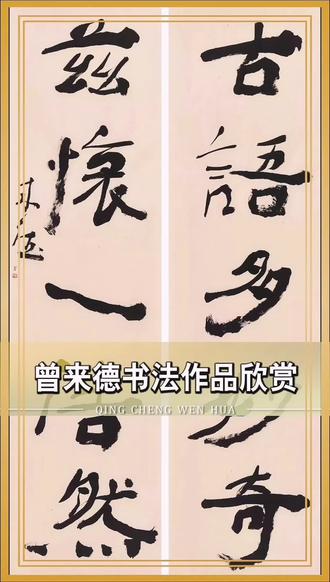 古語多奇
茲懷一然
来德
曾来德书法作品欣赏
QING CHENG WEN HUA